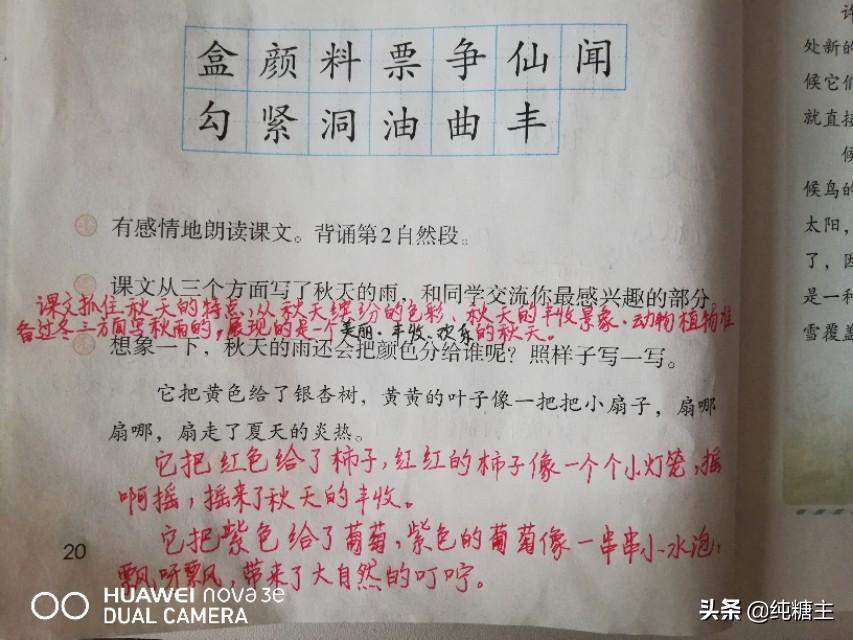 盒颜料票争仙闻
勾紧洞油曲丰
有感情地朗读课文。背诵第2自然段。
课文从三个方面写了秋天的雨，和同学交流你最感兴趣的部分。
课文抓住秋天的特点，从秋天缤纷的色彩、秋天的丰收景象、动物植物准
备过冬三方面写秋雨的，展现的是一个美丽、丰收、欢乐的秋天。
想象一下，秋天的雨还会把颜色分给谁呢？照样子写一写。
它把黄色给了银杏树，黄黄的叶子像一把把小扇子，扇哪
扇哪，扇走了夏天的炎热。
它把红色给了柿子，红红的柿子像一个个小灯笼，摇
啊摇，摇来了秋天的丰收。
它把紫色给了葡萄，紫色的葡萄像一串串小水泡，
飘呀飘，带来了大自然的叮咛。
20
HUAWEI nova 3e
DUAL CAMERA
头条 @纯糖主
许
处新的
候它们
就直接
候鸟的
太阳，
了，因
是一种
雪覆盖